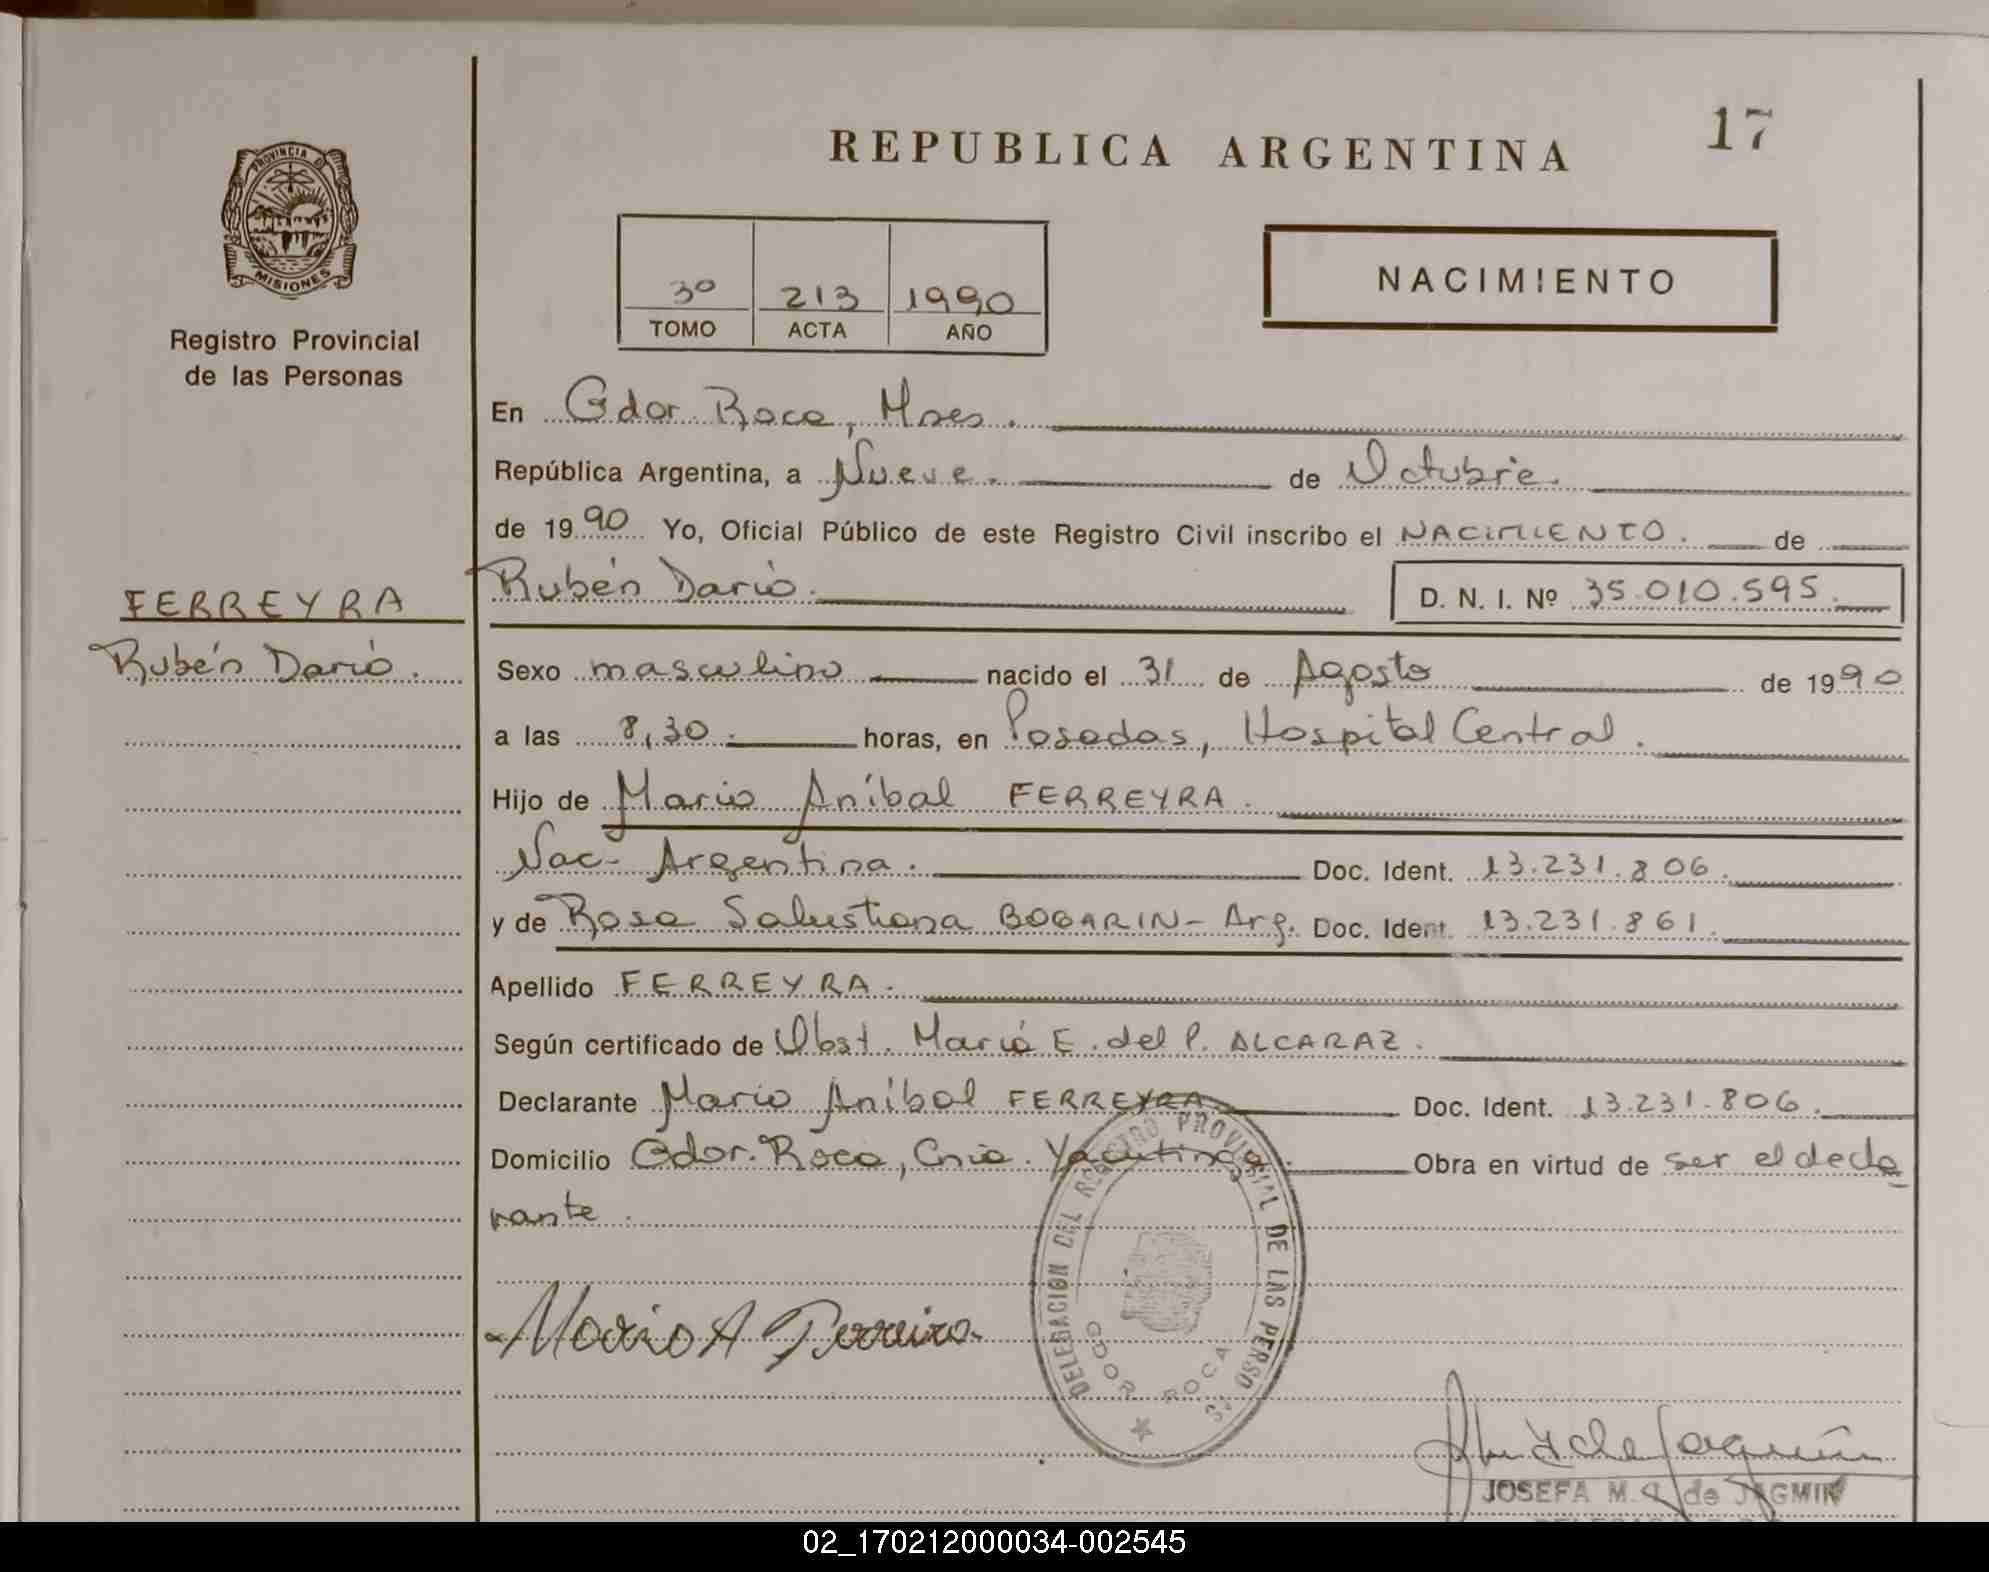 17
REPUBLICA ARGENTINA
PROVINCIA DE
MISIONES
Registro Provincial
de las Personas
3º 213 1990
TOMO ACTA AÑO
NACIMIENTO
En Gdor. Roca, Mnes.
República Argentina, a Nueve. de Octubre.
de 1990 Yo, Oficial Público de este Registro Civil inscribo el NACIMIENTO. de
Rubén Darío. D. N. I. Nº 35.010.595.
FERREYRA
Rubén Darío.
Sexo masculino nacido el 31 de Agosto de 1990
a las 8,30. horas, en Posadas, Hospital Central.
Hijo de Mario Aníbal FERREYRA.
Nac- Argentina. Doc. Ident. 13.231.806.
y de Rosa Salustiana BOGARIN- Arg. Doc. Ident. 13.231.861.
Apellido FERREYRA.
Según certificado de Obst. María E. del P. ALCARAZ.
Declarante Mario Aníbal FERREYRA. Doc. Ident. 13.231.806.
Domicilio Gdor. Roca, Cnia. Yacutinga. Obra en virtud de ser el decla
rante.
DELEGACION DEL REGISTRO PROVINCIAL DE LAS PERSONAS
GDOR ROCA
Mario A Ferreira
JOSEFA M. de JAGMIN
02_170212000034-002545